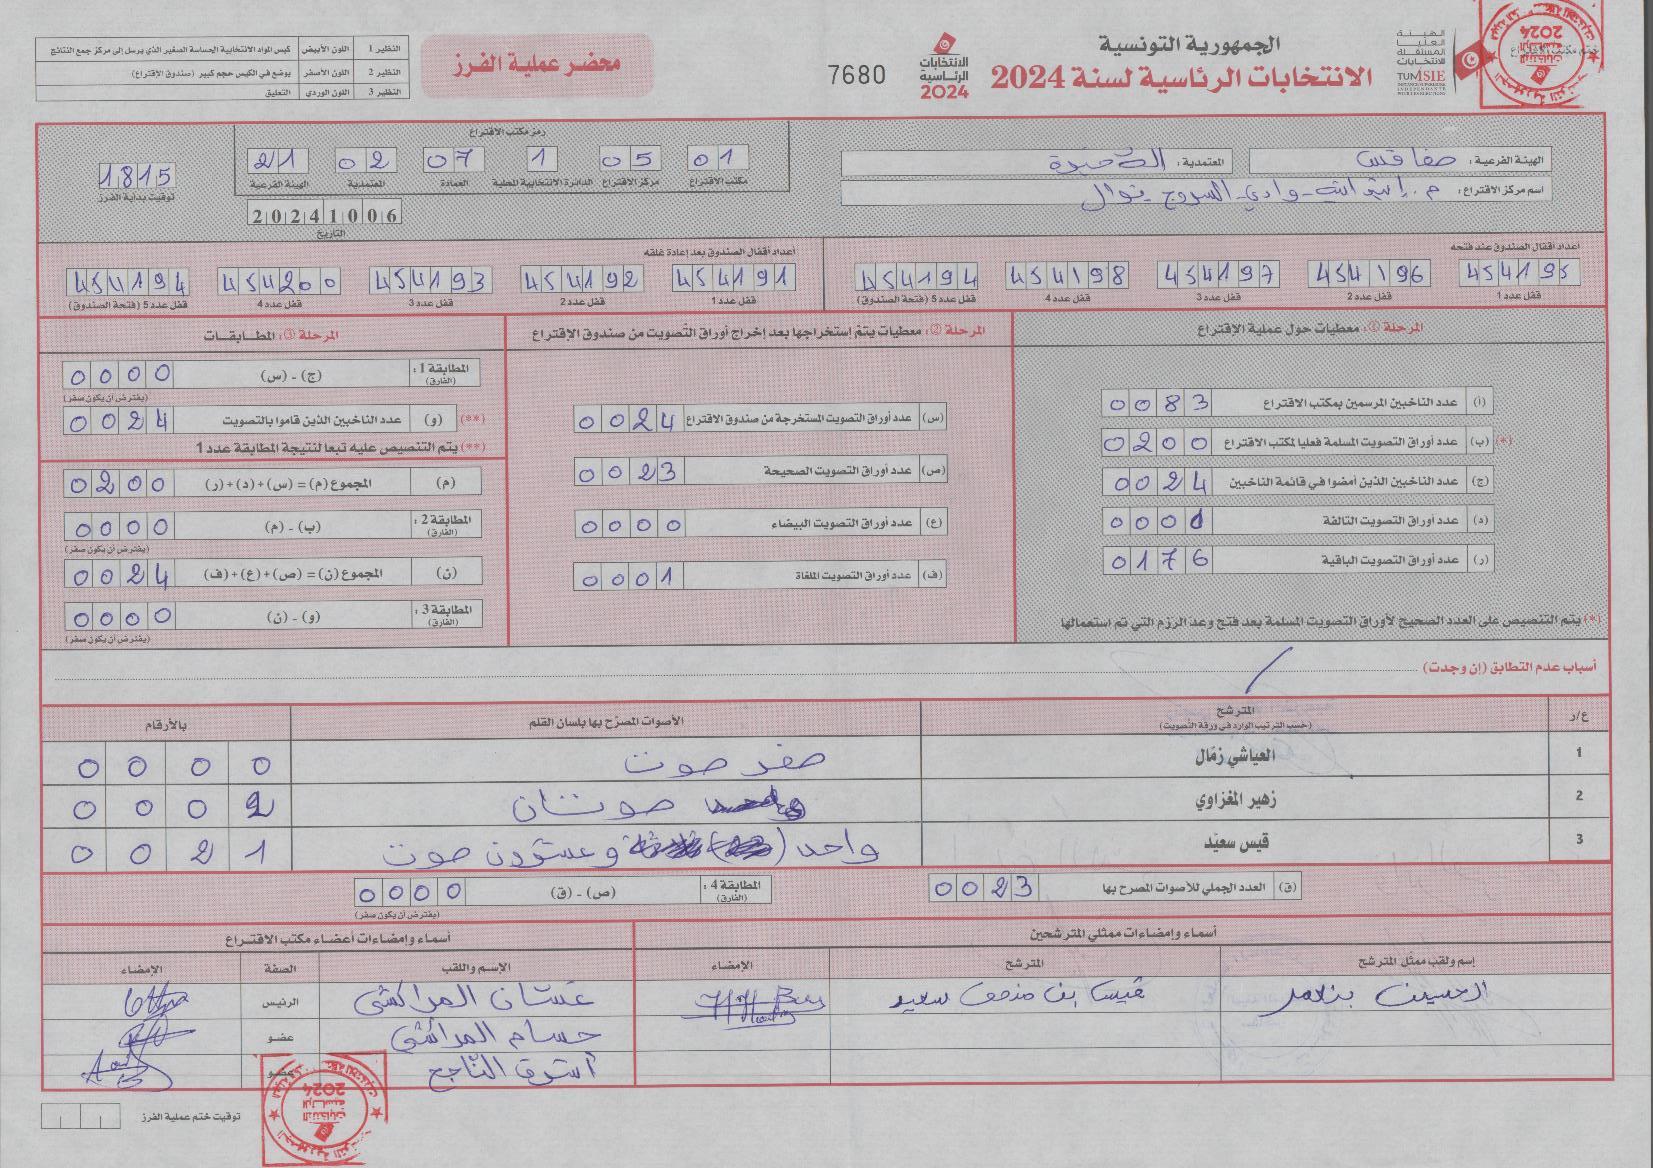 الجمهورية التونسية
الانتخابات الرئاسية لسنة 2024
الهيئة العليا المستقلة للانتخابات
TUNISIE
الانتخابات الرئاسية 2024
7680
محضر عملية الفرز
النظير 1 اللون الأبيض كيس المواد الانتخابية الحساسة الصغير الذي يرسل إلى مركز جمع النتائج
النظير 2 اللون الأصفر يوضع في الكيس حجم كبير (صندوق الإقتراع)
النظير 3 اللون الوردي التعليق
الهيئة الفرعية : صفاقس المعتمدية :
اسم مركز الاقتراع :
رمز مكتب الاقتراع
01 05 1 07 02 21
مكتب الاقتراع مركز الاقتراع الدائرة الانتخابية المحلية العمادة المعتمدية الهيئة الفرعية
20241006
التاريخ
1815
توقيت بداية الفرز
أعداد أقفال الصندوق عند فتحه
454195 454196 454197 454198 454194
قفل عدد 1 قفل عدد 2 قفل عدد 3 قفل عدد 4 قفل عدد 5 (فتحة الصندوق)
أعداد أقفال الصندوق بعد إعادة غلقه
454191 454192 454193 454200 454194
قفل عدد 1 قفل عدد 2 قفل عدد 3 قفل عدد 4 قفل عدد 5 (فتحة الصندوق)
المرحلة ①: معطيات حول عملية الإقتراع
(أ) عدد الناخبين المرسمين بمكتب الاقتراع 0083
(*) (ب) عدد أوراق التصويت المسلمة فعليا لمكتب الاقتراع 0200
(ج) عدد الناخبين الذين أمضوا في قائمة الناخبين 0024
(د) عدد أوراق التصويت التالفة
(ر) عدد أوراق التصويت الباقية 0176
(*) يتم التنصيص على العدد الصحيح لأوراق التصويت المسلمة بعد فتح وعد الرزم التي تم استعمالها
المرحلة ②: معطيات يتم استخراجها بعد إخراج أوراق التصويت من صندوق الإقتراع
(س) عدد أوراق التصويت المستخرجة من صندوق الاقتراع 0024
(ص) عدد أوراق التصويت الصحيحة 0023
(ع) عدد أوراق التصويت البيضاء 0000
(ف) عدد أوراق التصويت الملغاة 0001
المرحلة ③: المطابقات
المطابقة 1 : (الفارق) (ج) - (س) 0000
(يفترض أن يكون صفر)
(**) (و) عدد الناخبين الذين قاموا بالتصويت 0024
(**) يتم التنصيص عليه تبعا لنتيجة المطابقة عدد 1
(م) المجموع (م) = (س) + (د) + (ر) 0200
المطابقة 2 : (الفارق) (ب) - (م) 0000
(يفترض أن يكون صفر)
(ن) المجموع (ن) = (ص) + (ع) + (ف) 0024
المطابقة 3 : (الفارق) (و) - (ن) 0000
(يفترض أن يكون صفر)
أسباب عدم التطابق (إن وجدت) /
ع/ر المترشح (حسب الترتيب الوارد في ورقة التصويت) الأصوات المصرّح بها بلسان القلم بالأرقام
1 العياشي زمّال صفر صوت 0000
2 زهير المغزاوي صوتان 0002
3 قيس سعيّد واحد وعشرون صوت 0021
(ق) العدد الجملي للأصوات المصرح بها 0023
المطابقة 4 : (الفارق) (ص) - (ق) 0000
(يفترض أن يكون صفر)
أسماء وإمضاءات ممثلي المترشحين
إسم ولقب ممثل المترشح المترشح الإمضاء
الحسين قيس بن منصف سعيد
أسماء وإمضاءات أعضاء مكتب الاقتراع
الإسم واللقب الصفة الإمضاء
غسان المراكشي الرئيس
حسام المراكشي عضو
أشرف الناجح عضو
توقيت ختم عملية الفرز